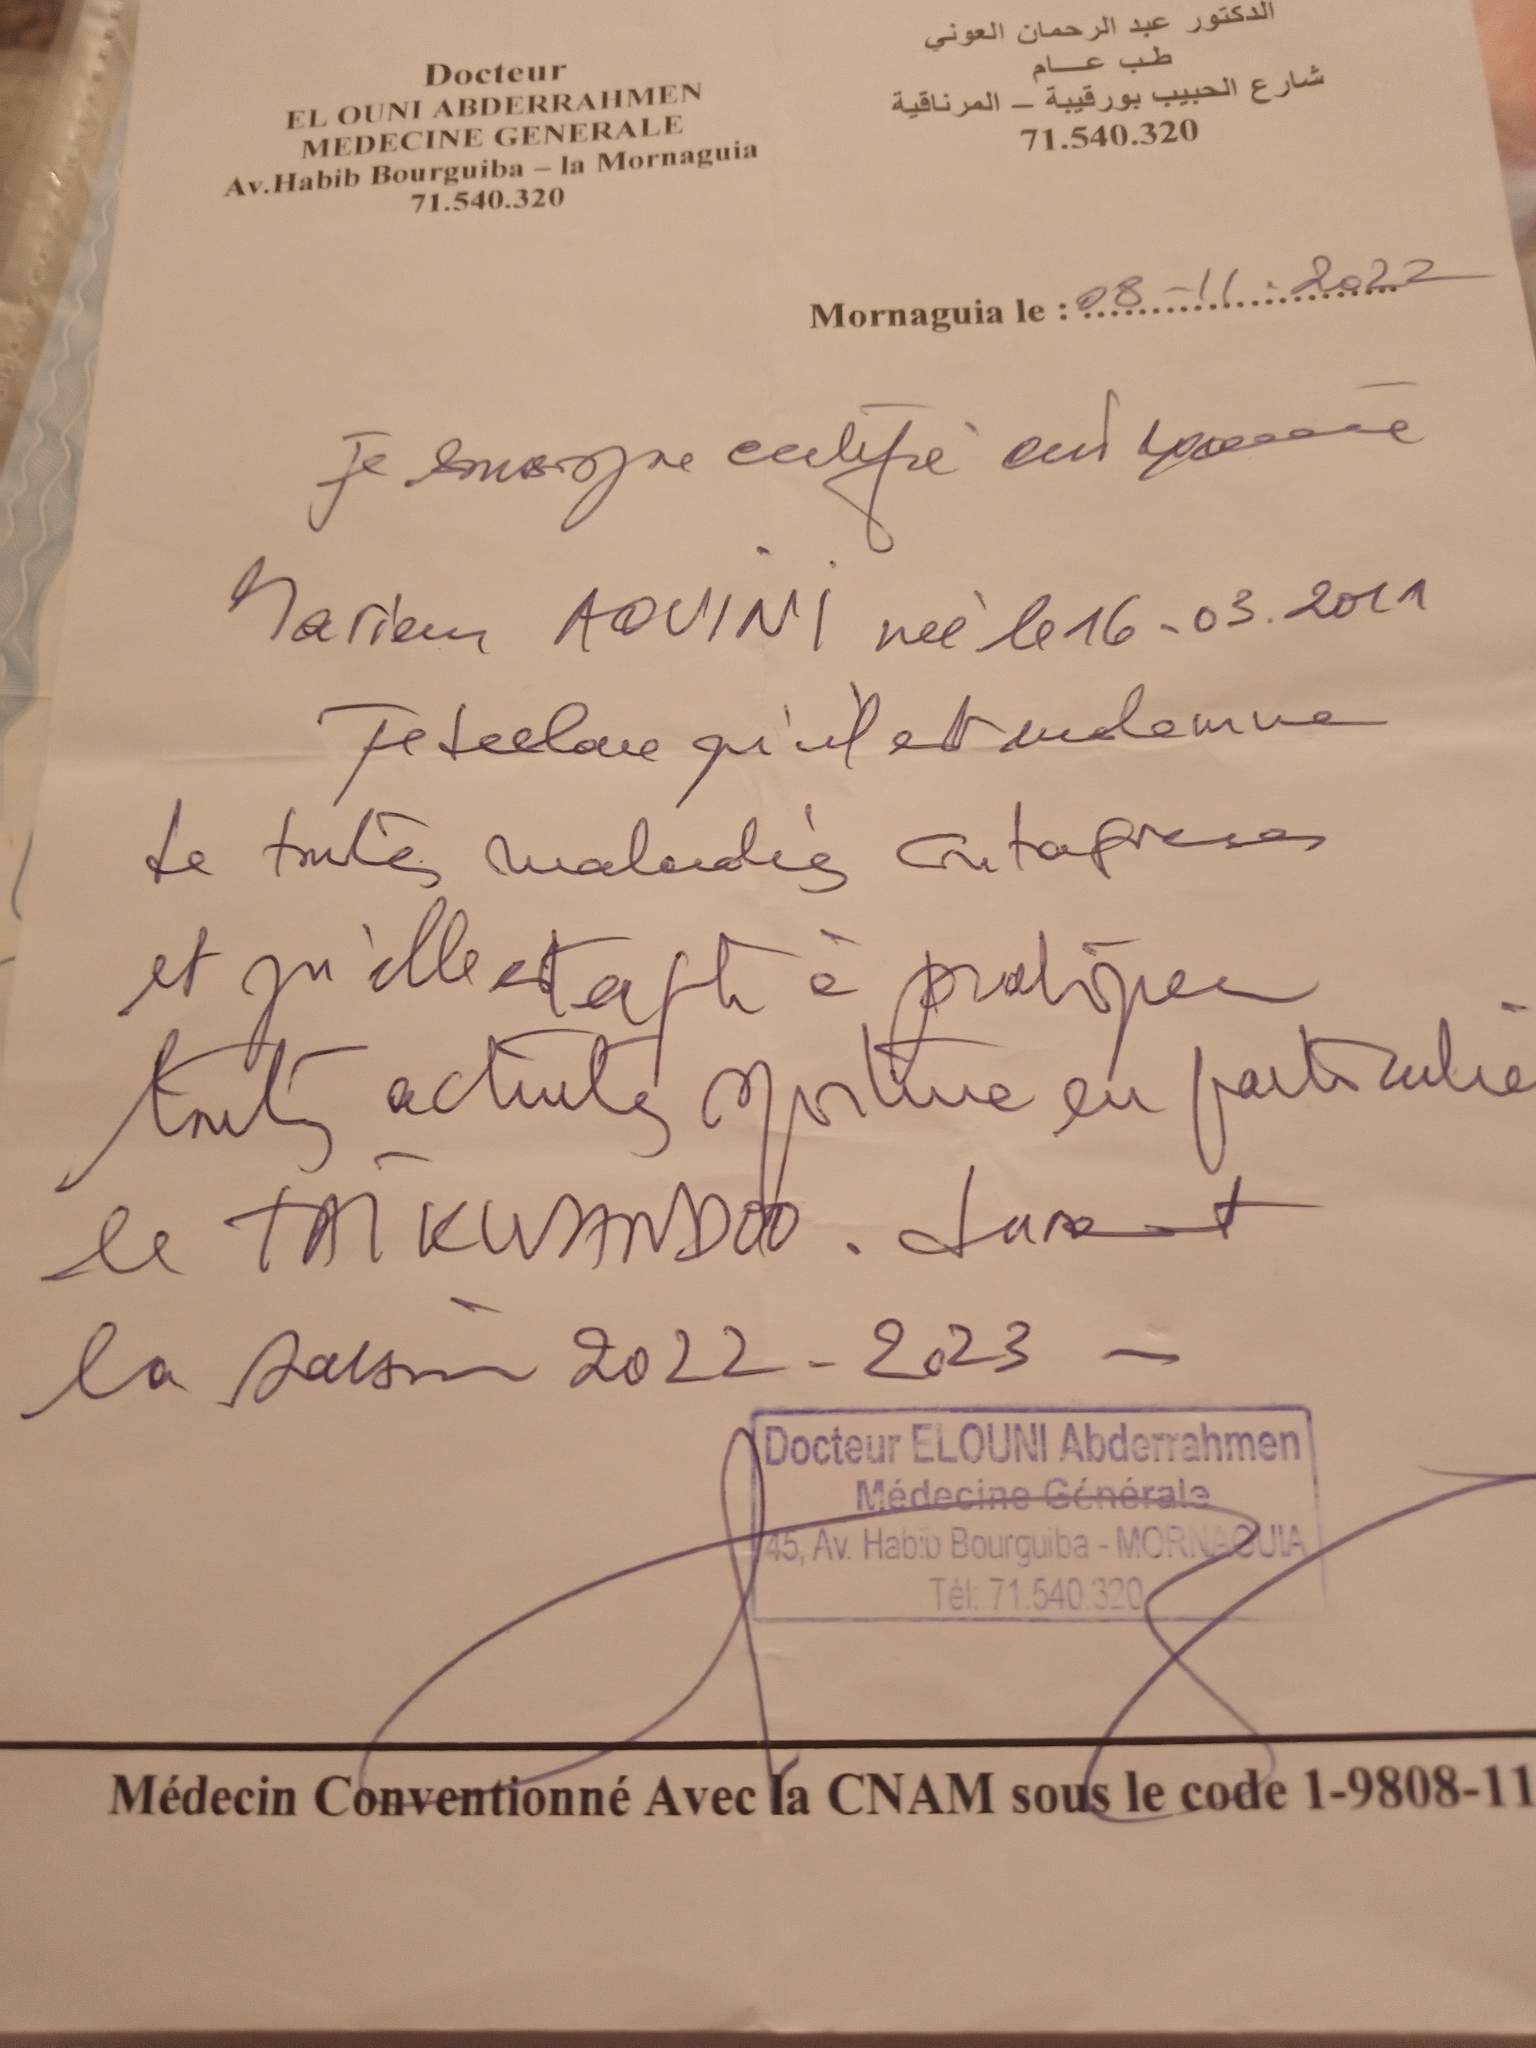 Docteur
EL OUNI ABDERRAHMEN
MEDECINE GENERALE
Av.Habib Bourguiba – la Mornaguia
71.540.320
الدكتور عبد الرحمان العوني
طب عـــام
شارع الحبيب بورقيبة – المرناقية
71.540.320
Mornaguia le : 08-11.2022
Je certifie
Mariem AOUINI née le 16-03.2011
Je declare qu'il est indemne
de toutes maladies contagieuses
et qu'elle est apte à pratiquer
toutes activités sportive en particulie
le TAÏKWANDOO. durant
la saison 2022-2023 –
Docteur ELOUNI Abderrahmen
Médecine Générale
45, Av. Habib Bourguiba - MORNAGUIA
Tél: 71.540.320
Médecin Conventionné Avec la CNAM sous le code 1-9808-11